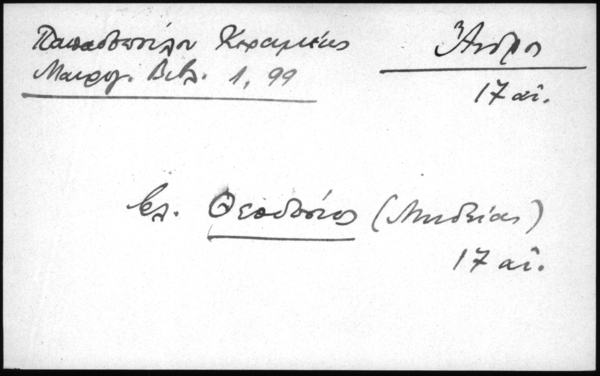 Παπαδοπούλου Κεραμέως
Μαυρογ. Βιβλ. 1, 99
Ἄνδρος
17 αἰ.
βλ. Θεοδόσιος (Μηδείας)
17 αἰ.